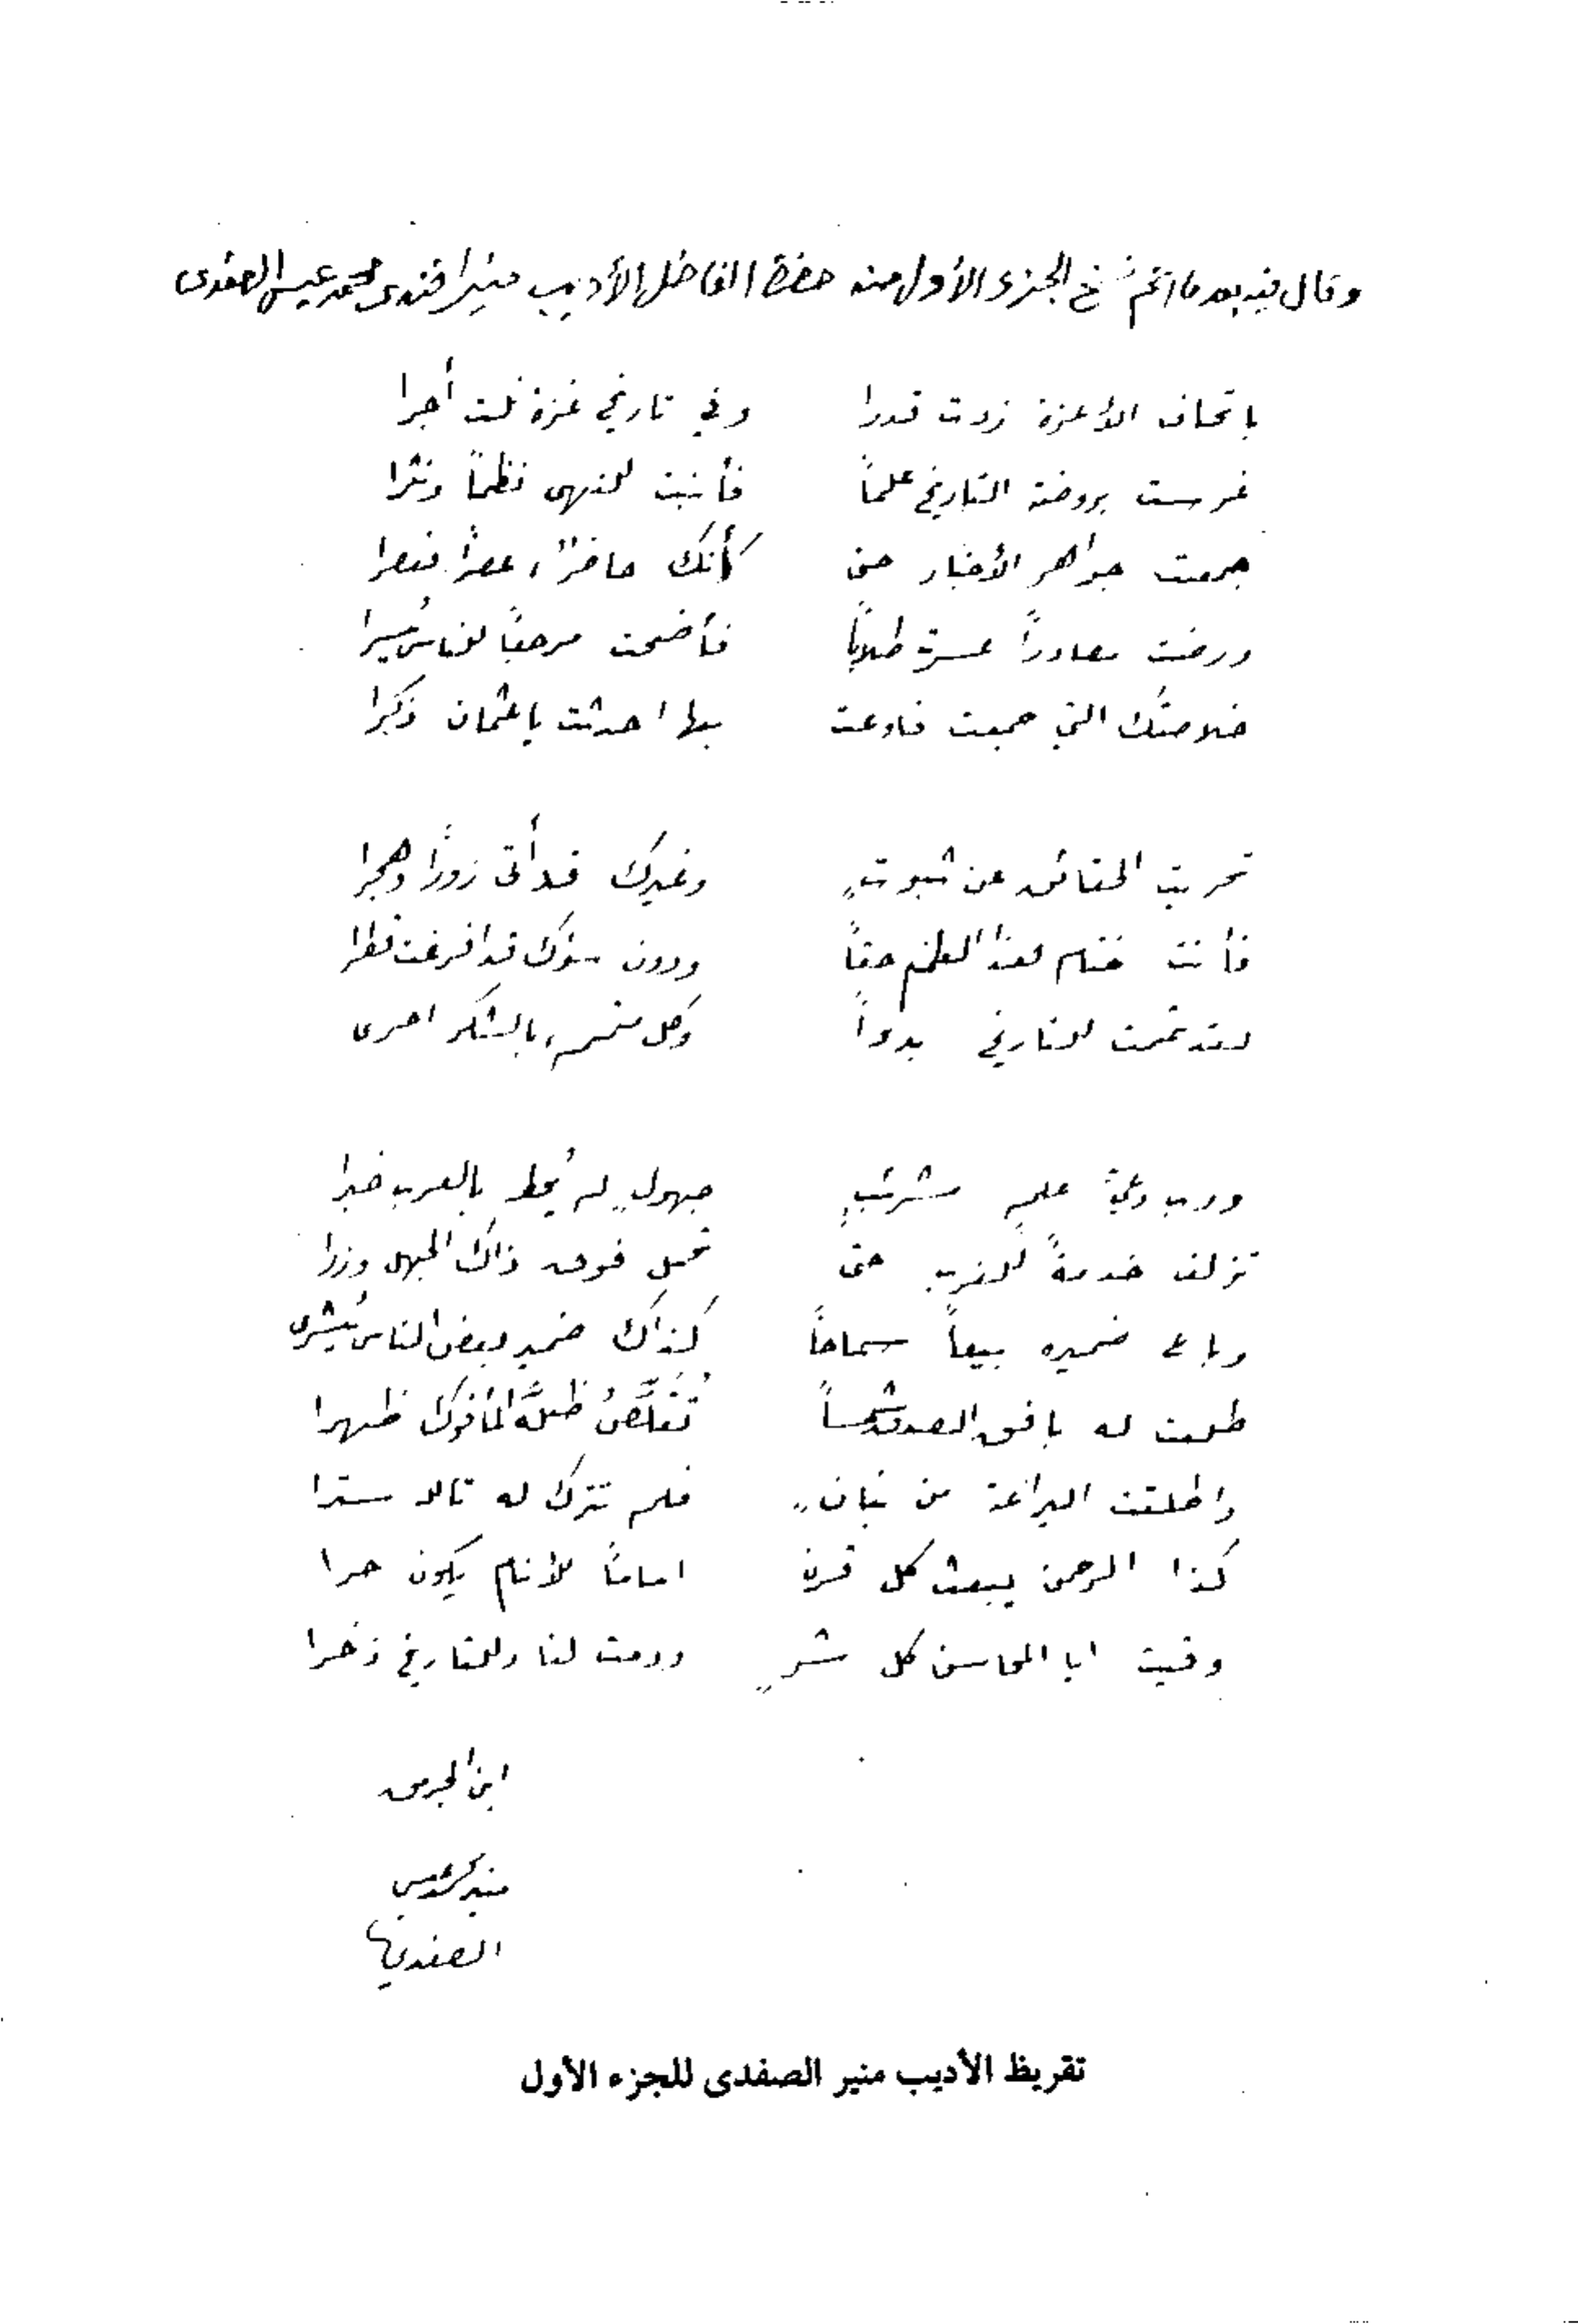 وقال فيه بعد ما أتم نسخ الجزء الأول منه حضرة الفاضل الأديب منير افندى محمد عيسى الصفدى
باتحاف الأعزة زدت قدرا وفي تاريخ غزة نلت أجرا
غرست بروضة التاريخ علماً فأنبت للنهى نظماً ونثرا
جمعت جواهر الأخبار حتى كأنك حاضرٌ، عصراً فعصرا
ورضت مصادراً عسرت طلاباً فأضحت مرجعاً للناس يُسرا
خلاصتك التي جمعت فاوعت بها احدثت يا عثمان ذكرا
تحريت الحقائق عن ثبوتٍ وغيرك قد أتى زوراً وهجرا
فأنت ختام لهذا العلم حقاً ودون سؤك قد افرغت قطرا
لقد تممت للتاريخ بدءاً وكل متمم، بالشكر احرى
ورب دعيّ علمٍ مشرئبٍ جهولٍ لم يُحط بالعرب خبرا
تزلف خدمةً للغرب حتى تحمل فوق ذاك الجهل وزرا
وباع ضميره بيعاً سماحاً كذاك ضمير بعض الناس يُشرى
طلعت له بافق الصدق شمساً تُقلّصُ ظلّه المأفوك ظهرا
واطلقت اليراعة من بنانٍ فلم تترك له تالله سترا
كذا الرحمن يبعث كل قرن اماماً للأنام يكون حبرا
وقيت ابا المحاسن كل شرٍ ودمت لنا وللتاريخ ذخرا
منير محمد عيسى
الصفدي
تقريظ الأديب منير الصفدى للجزء الأول